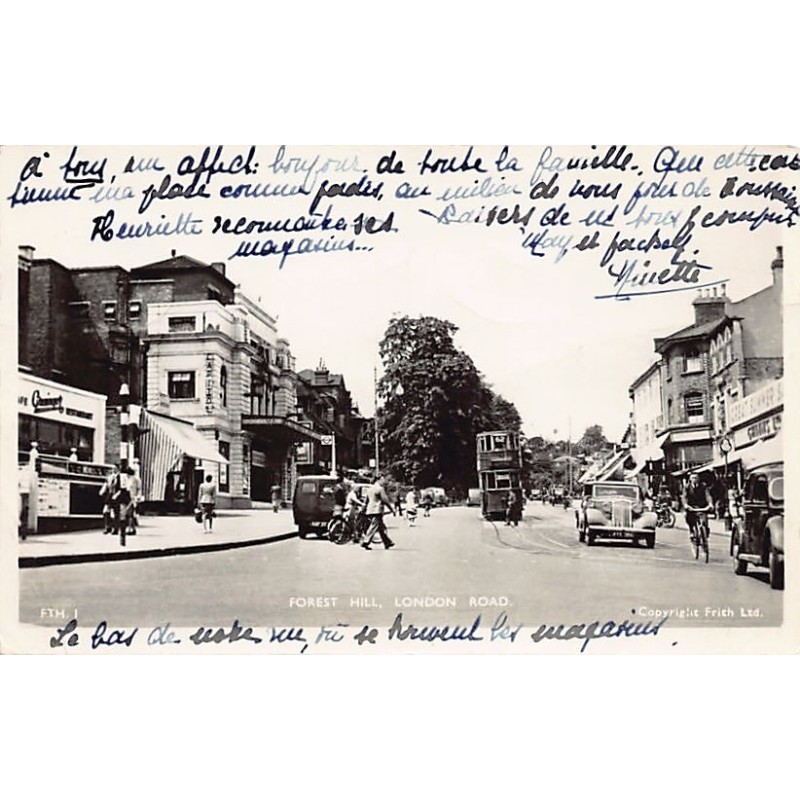 à tous, un affect: bonjour de toute la famille. Que cette carte
tienne ma place comme jadis, au milieu de vous pour la Toussaint
Henriette reconnaîtra ses Baisers de ns tous y compris
magasins... May et Jackel.
Ninette
CAPITOL
FOREST HILL, LONDON ROAD.
FTH. 1
Copyright Frith Ltd.
Le bas de notre rue, où se trouvent les magasins.